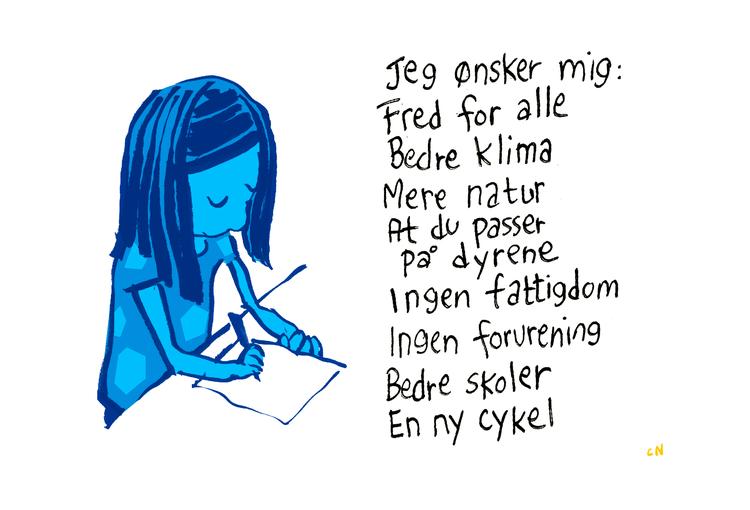 Jeg ønsker mig:
Fred for alle
Bedre klima
Mere natur
At du passer
på dyrene
Ingen fattigdom
Ingen forurening
Bedre skoler
En ny cykel
CN